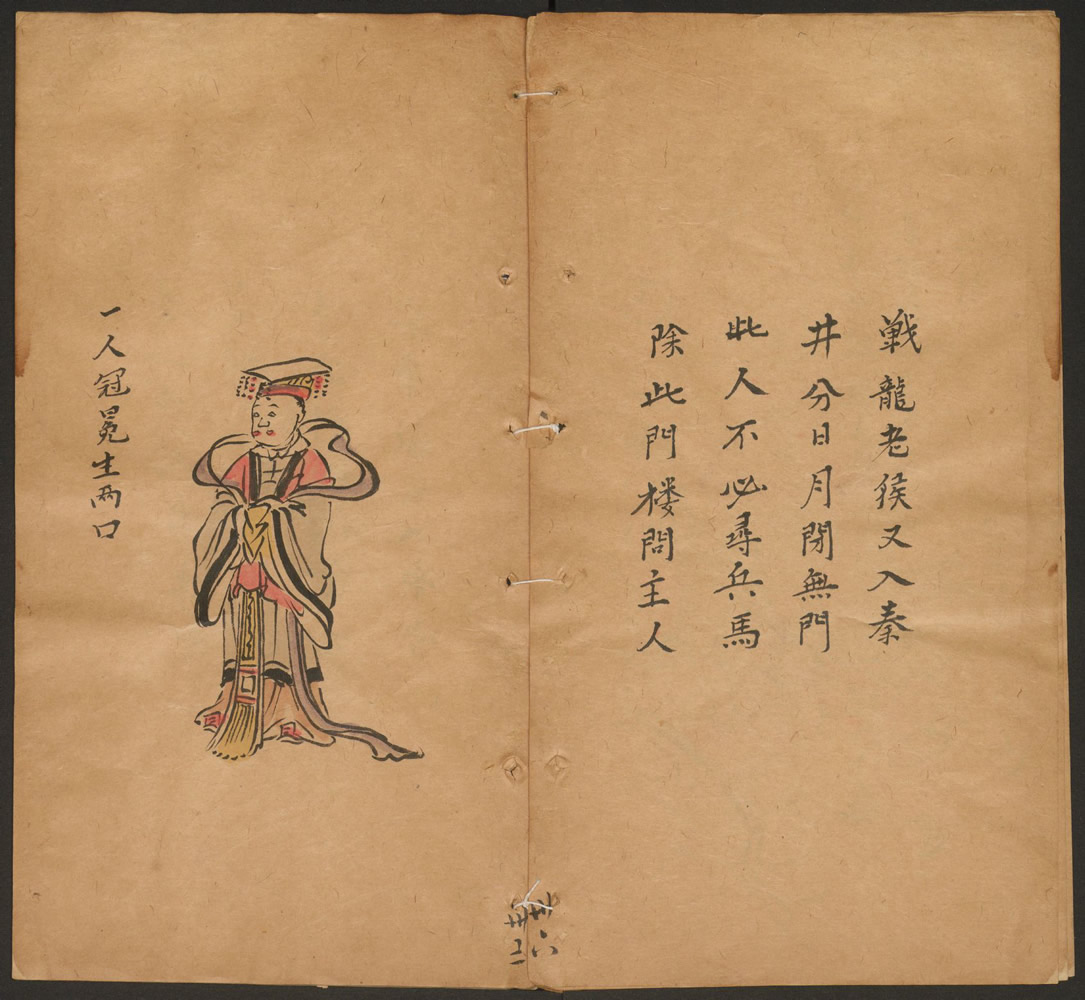 戦龍老猴又入秦
井分日月閉無門
此人不必尋兵馬
除此門楼問主人
卅六
卅二
一人冠冕生两口